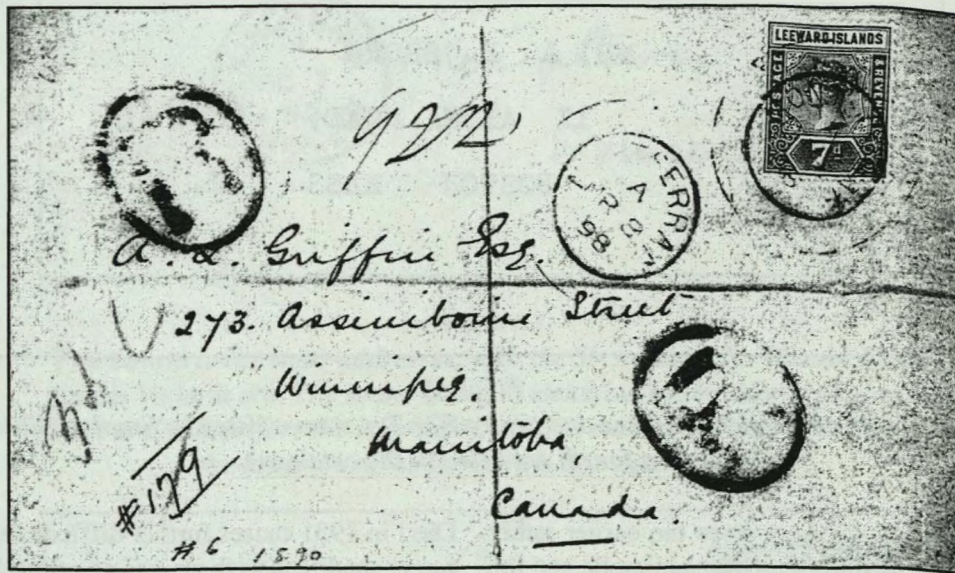 LEEWARD ISLANDS
POSTAGE & REVENUE
7d
922
A
98
A. L. Griffin Esq.
273. Assiniboine Street
Winnipeg.
Manitoba,
Canada.
#179
#6 1890